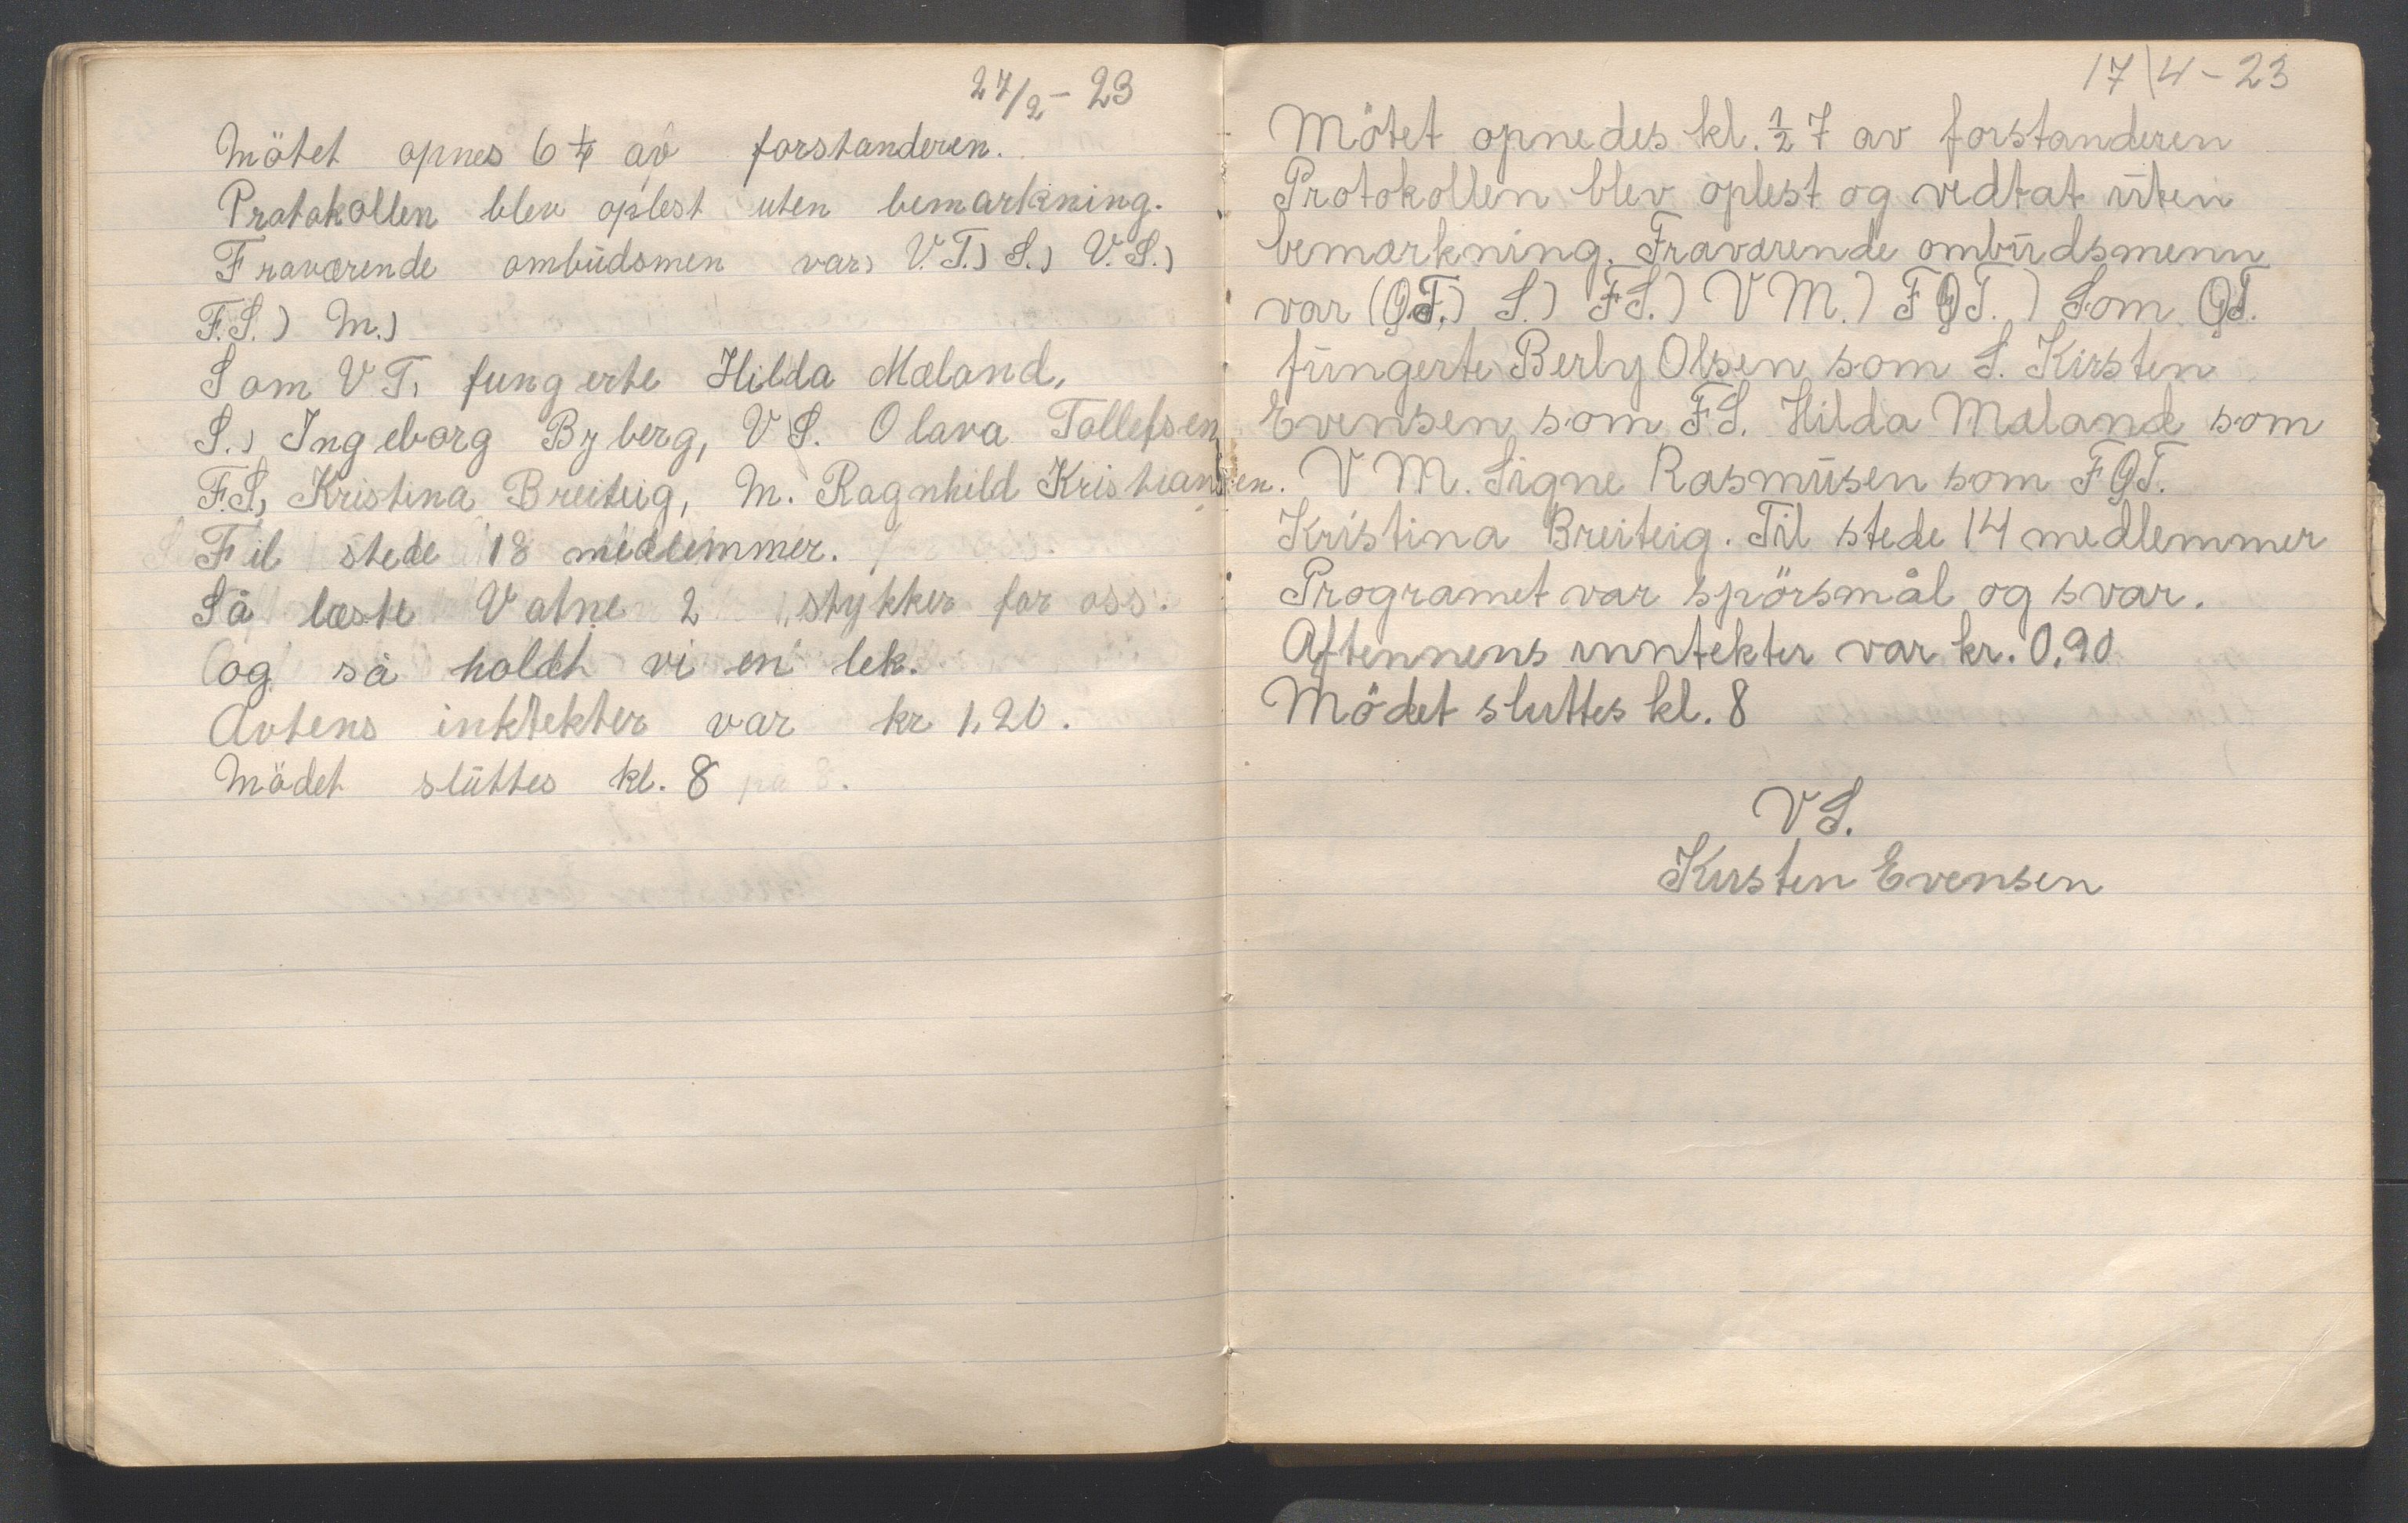 27/2 - 23
Mötet opnes 6 1/4 av forstanderen.
Protokollen blev oplest uten bemarkning.
Fraværende ombudsmen var, V.T.) S.) V.S.)
F.S.) M.)
Som V T, fungerte Hilda Mæland,
S., Ingeborg Byberg, V S. Olava Tollefsen
F.S, Kristina Breiteig, M. Ragnhild Kristiansen.
Fil stede 18 medlemmer.
Så læste Vatne 2 stykker for oss.
og så holdt vi en lek.
Avtens inktekter var kr 1,20.
Mödet sluttes kl. 8
17/4 - 23
Mötet opnedes kl. 1/2 7 av forstanderen
Protokollen blev oplest og vedtat uten
bemærkning. Fraværende ombudsmenn
var (GT.) S.) FS.) V M.) FGT.) Som GT.
fungerte Berly Olsen som S. Kirsten
Evensen som FS. Hilda Mæland som
V M. Signe Rasmusen som FGT.
Kristina Breiteig. Til stede 14 medlemmer
Programet var spörsmål og svar.
Aftennens inntekter var kr. 0,90
Mödet sluttes kl. 8
VS.
Kirsten Evensen